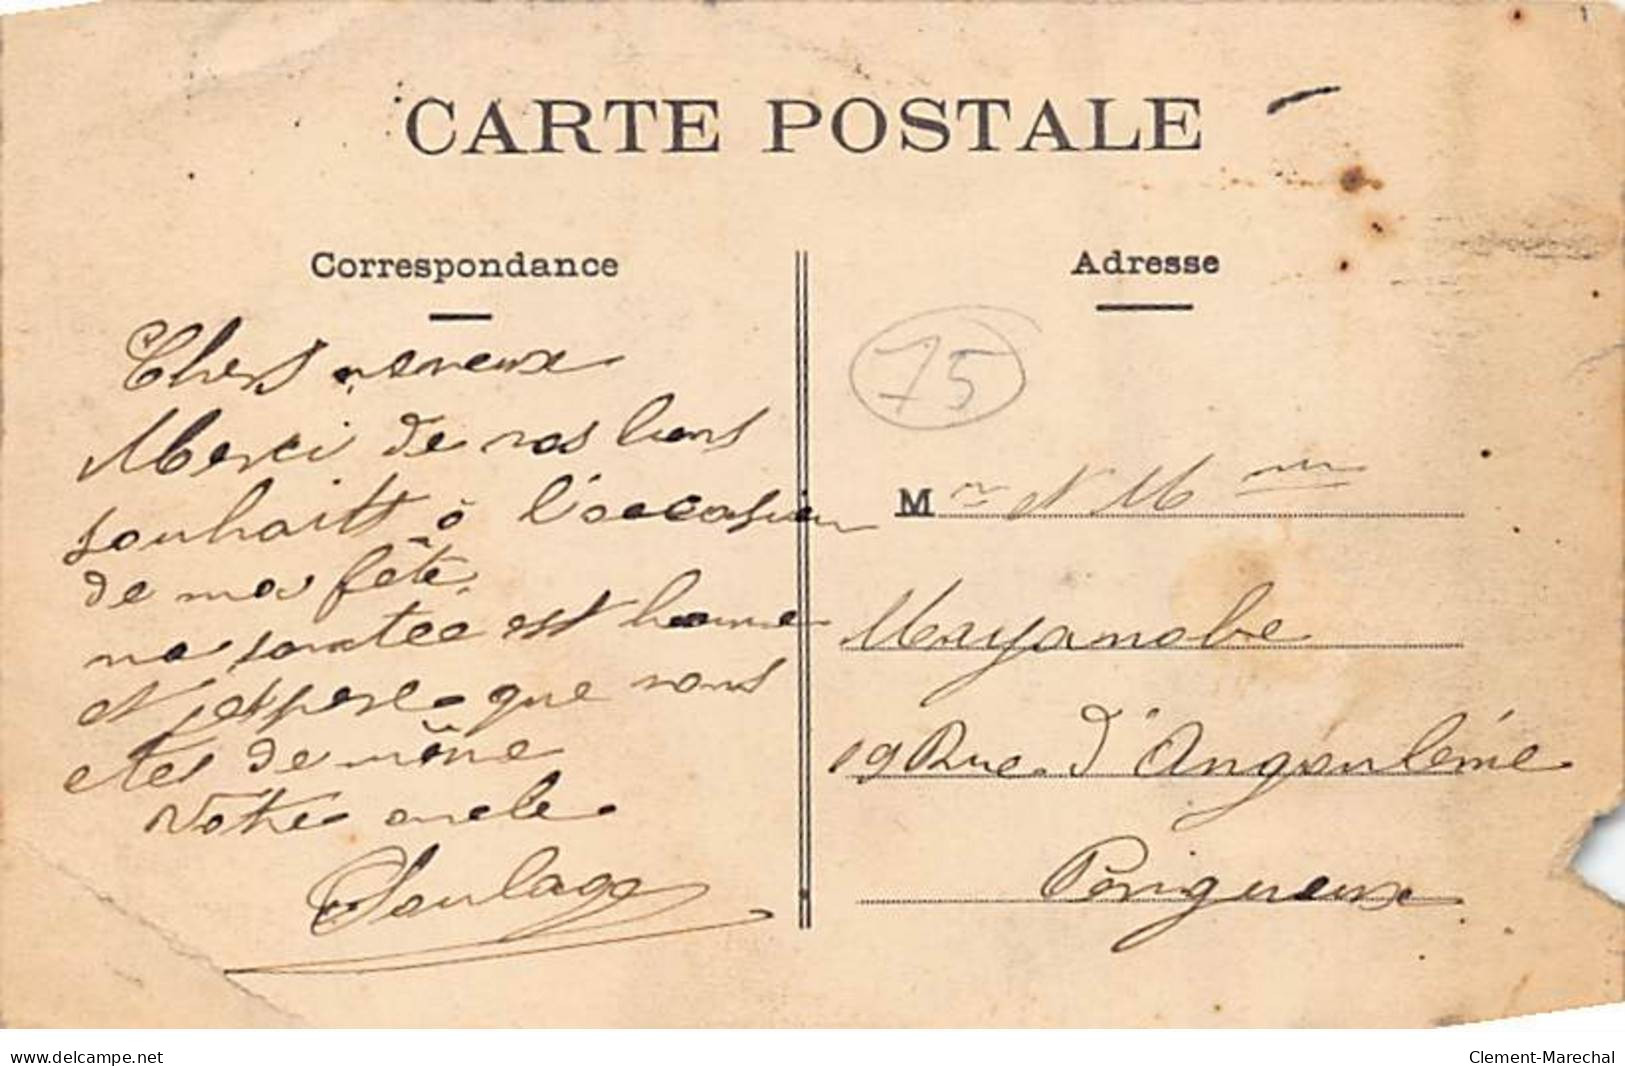 CARTE POSTALE
Correspondance
Chers neveux
Merci de vos bons
souhaitt à l'occasion
de ma fête.
ma santée est bonne
et j'espere que vous
etes de même
Votre oncle
Soulage
Adresse
75
Mr et Mme
Mayanobe
19 Rue d'Angoulême
Périgueux
www.delcampe.net
Clement-Marechal